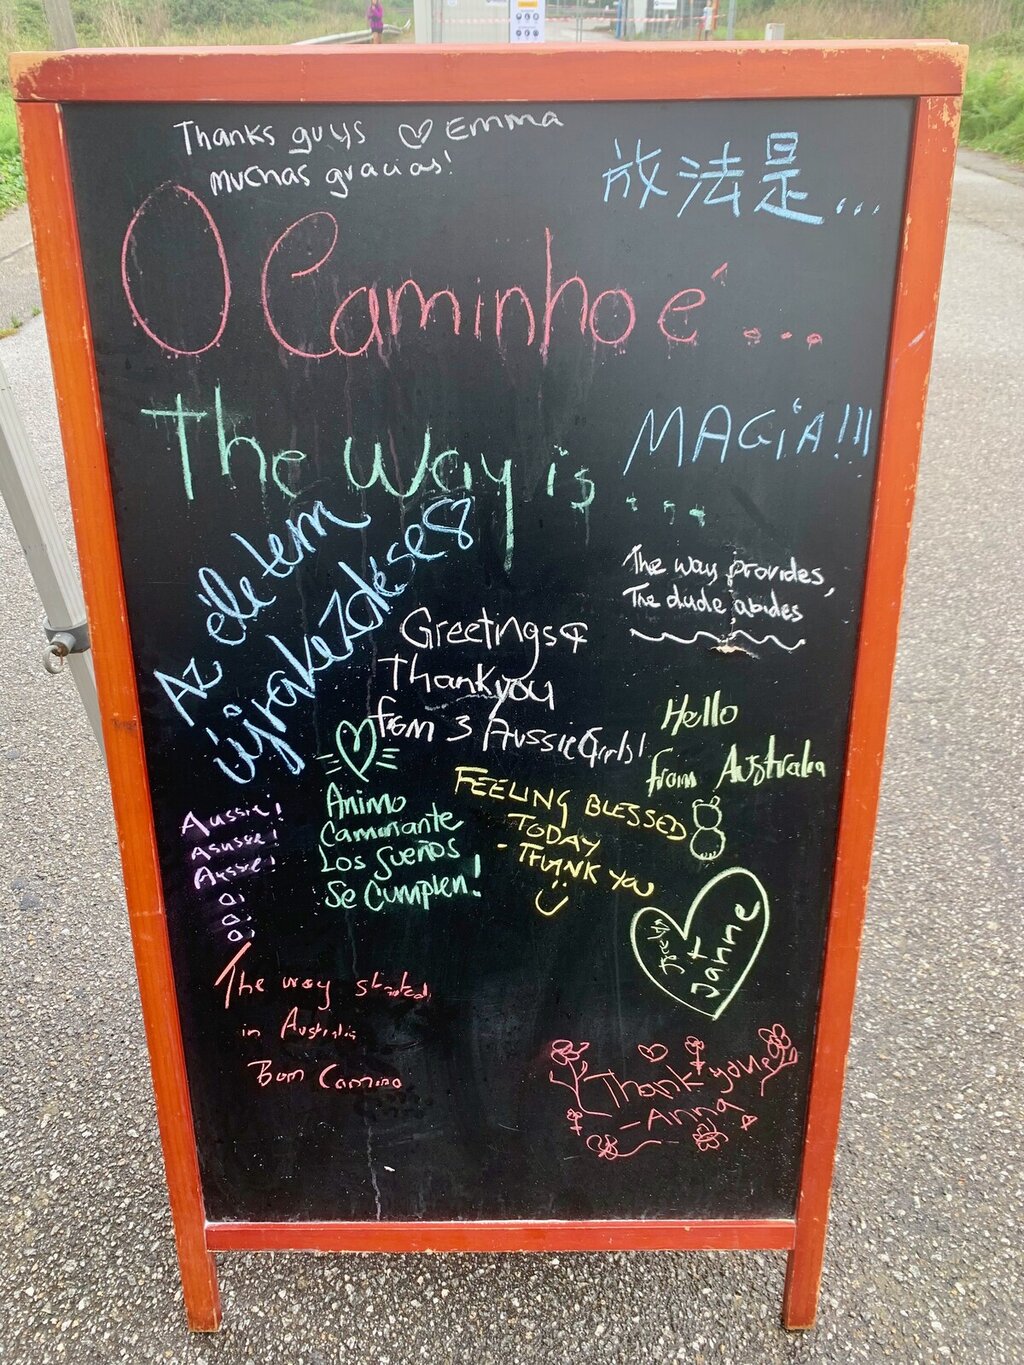 Thanks guys ♡ Emma
muchas gracias!
放法是...
O Caminho é ...
The way is ...
MAGiA!!!
Az életem
újrakezdése
The way provides,
The dude abides
Greetings &
Thank you
from 3 Aussie Girls!
Hello
from Australia
Animo
Caminante
Los Sueños
Se Cumplen!
FEELING BLESSED
TODAY
- THANK YOU
Aussie!
Asussie!
Aussie!
Oi
Oi
Oi
Jocelyn
+
Janne
The way started
in Australia
Bom Camino
Thank you
- Anna